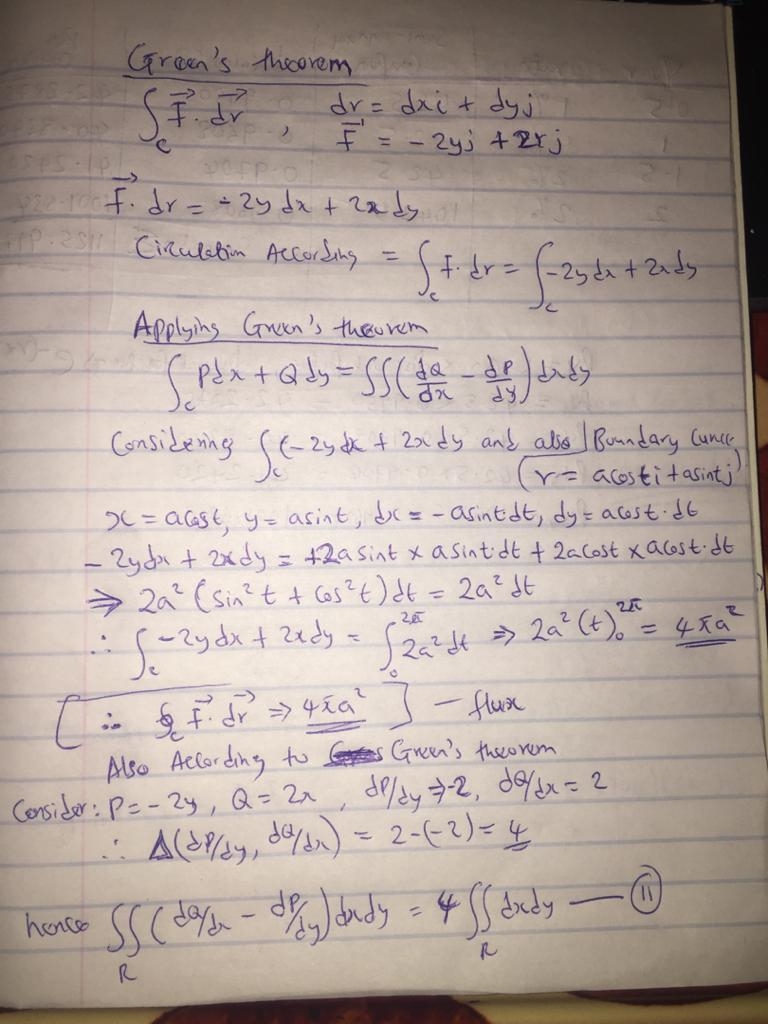 Green's theorem
∫_c F⃗. dr⃗ , dr = dxi + dyj
F⃗ = - 2yj + 2xj
F⃗. dr = -2y dx + 2x dy
Circulation According = ∫_c F. dr = ∫_c -2y dx + 2x dy
Applying Green's theorem
∫_c Pdx + Q dy = ∫∫ (dQ/dx - dP/dy) dxdy
Considering ∫_c (-2y dx + 2x dy and also Boundary Curve
(r = acosti + asintj)
x = acost, y = asint, dx = -asintdt, dy = acost.dt
- 2ydx + 2xdy = +2asint x asint.dt + 2acost x acost.dt
⇒ 2a² (sin²t + cos²t) dt = 2a² dt
∴ ∫_c -2y dx + 2x dy = ∫₀^2π 2a² dt ⇒ 2a² (t)₀^2π = 4πa²
[∴ ∮_c F⃗. dr⃗ ⇒ 4πa² ] - flux
Also According to Green's theorem
Consider: P = -2y, Q = 2x, dP/dy ⇒ -2, dQ/dx = 2
∴ Δ(dP/dy, dQ/dx) = 2-(-2) = 4
hence ∫∫_R (dQ/dx - dP/dy) dxdy = 4 ∫∫_R dxdy — (II)